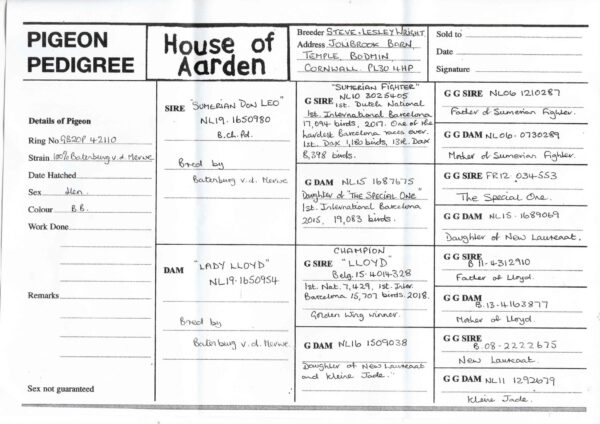 PIGEON
PEDIGREE
House of
Aarden
Breeder STEVE & LESLEY WRIGHT
Address JONBROOK BARN,
TEMPLE, BODMIN,
CORNWALL PL30 4HP
Sold to
Date
Signature
Details of Pigeon
Ring No GB20P 42110
Strain 100% Batenburg v.d Merwe
Date Hatched
Sex Hen
Colour B.B.
Work Done
Remarks
Sex not guaranteed
SIRE "SUMERIAN DON LEO"
NL19.1650980
B.ch.Pd.
Bred by
Batenburg v.d. Merwe
DAM "LADY LLOYD"
NL19.1650954
Bred by
Batenburg v.d. Merwe
"SUMERIAN FIGHTER"
G SIRE NL10 3025405
1st. Dutch National
1st. International Barcelona
17,094 birds, 2017. One of the
hardest Barcelona races ever.
1st. Dax 1,180 birds, 13th. Dax
8,398 birds.
G DAM NL15 1687675
Daughter of "THE SPECIAL ONE"
1st. International Barcelona
2015, 19,083 birds.
CHAMPION
G SIRE "LLOYD"
Belg.15-4014328
1st. Nat. 7,429, 1st. Inter.
Barcelona 15,707 birds. 2018.
Golden Wing winner.
G DAM NL16 1509038
Daughter of New Laureaat
and Kleine Jade."
G G SIRE NL06 1210287
Father of Sumerian Fighter.
G G DAM NL06.0730289
Mother of Sumerian Fighter.
G G SIRE FR12 034553
The Special One.
G G DAM NL15-1689069
Daughter of New Laureaat.
G G SIRE
B 11-4312910
Father of Lloyd.
G G DAM
B.13-4163877
Mother of Lloyd.
G G SIRE
B.08-2222675
New Laureaat.
G G DAM NL11 1292679
Kleine Jade.